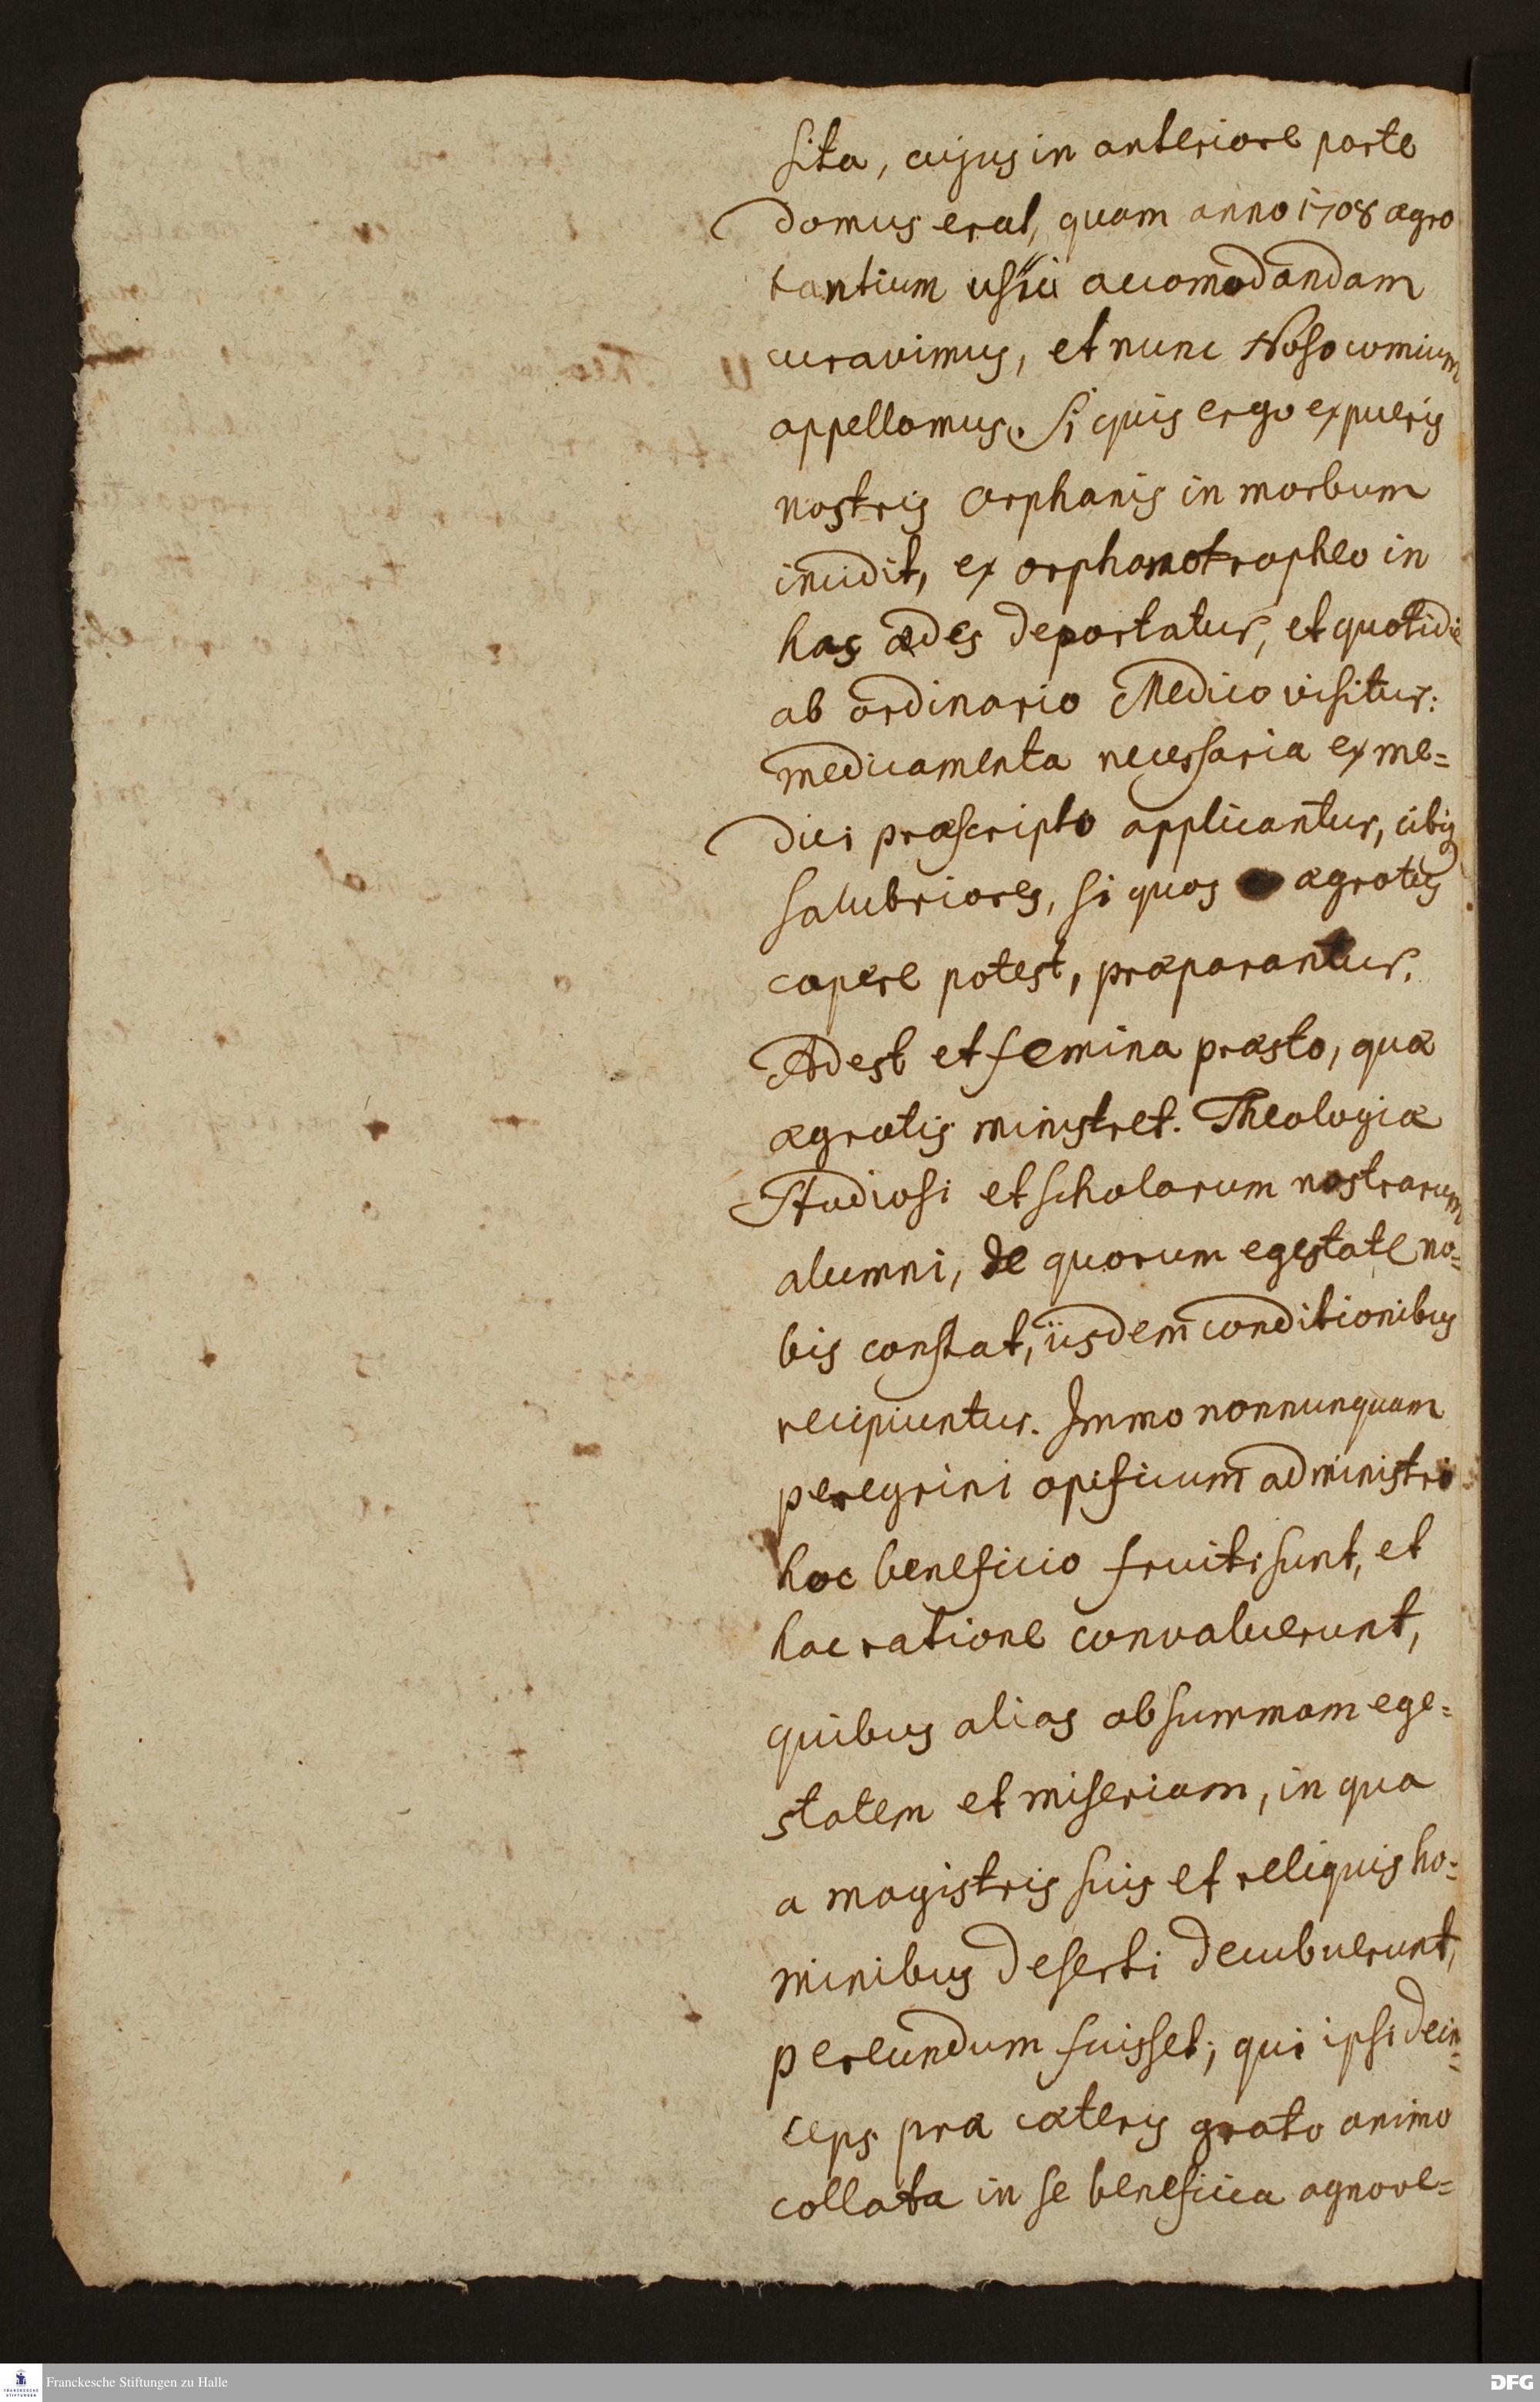 sita, cujus in anteriore parte
domus erat, quam anno 1708 ægro
tantium usui accomodandam
curavimus, et nunc Nosocomium
appellamus. Si quis ergo ex pueris
nostris orphanis in morbum
incidit, ex orphanotropheo in
has ædes deportatur, et quotidie
ab ordinario Medico visitur:
medicamenta necessaria ex me=
dici præscripto applicantur, cibiq
salubriores, si quos ægrotus
capere potest, præparantur.
Adest et femina præsto, quæ
ægrotis ministret. Theologiæ
Studiosi et scholarum nostrarum
alumni, de quorum egestate no=
bis constat, iisdem conditionibus
recipiuntur. Immo nonnunquam
peregrini opificum administri
hoc beneficio fruiti sunt, et
hac ratione convaluerunt,
quibus alias ob summam ege=
statem et miseriam, in qua
a magistris suis et reliquis ho=
minibus deserti decubuerunt,
pereundum fuisset; qui ipsi dein=
ceps præ cæteris grato animo
collata in se beneficia agnove=
Franckesche Stiftungen zu Halle
DFG